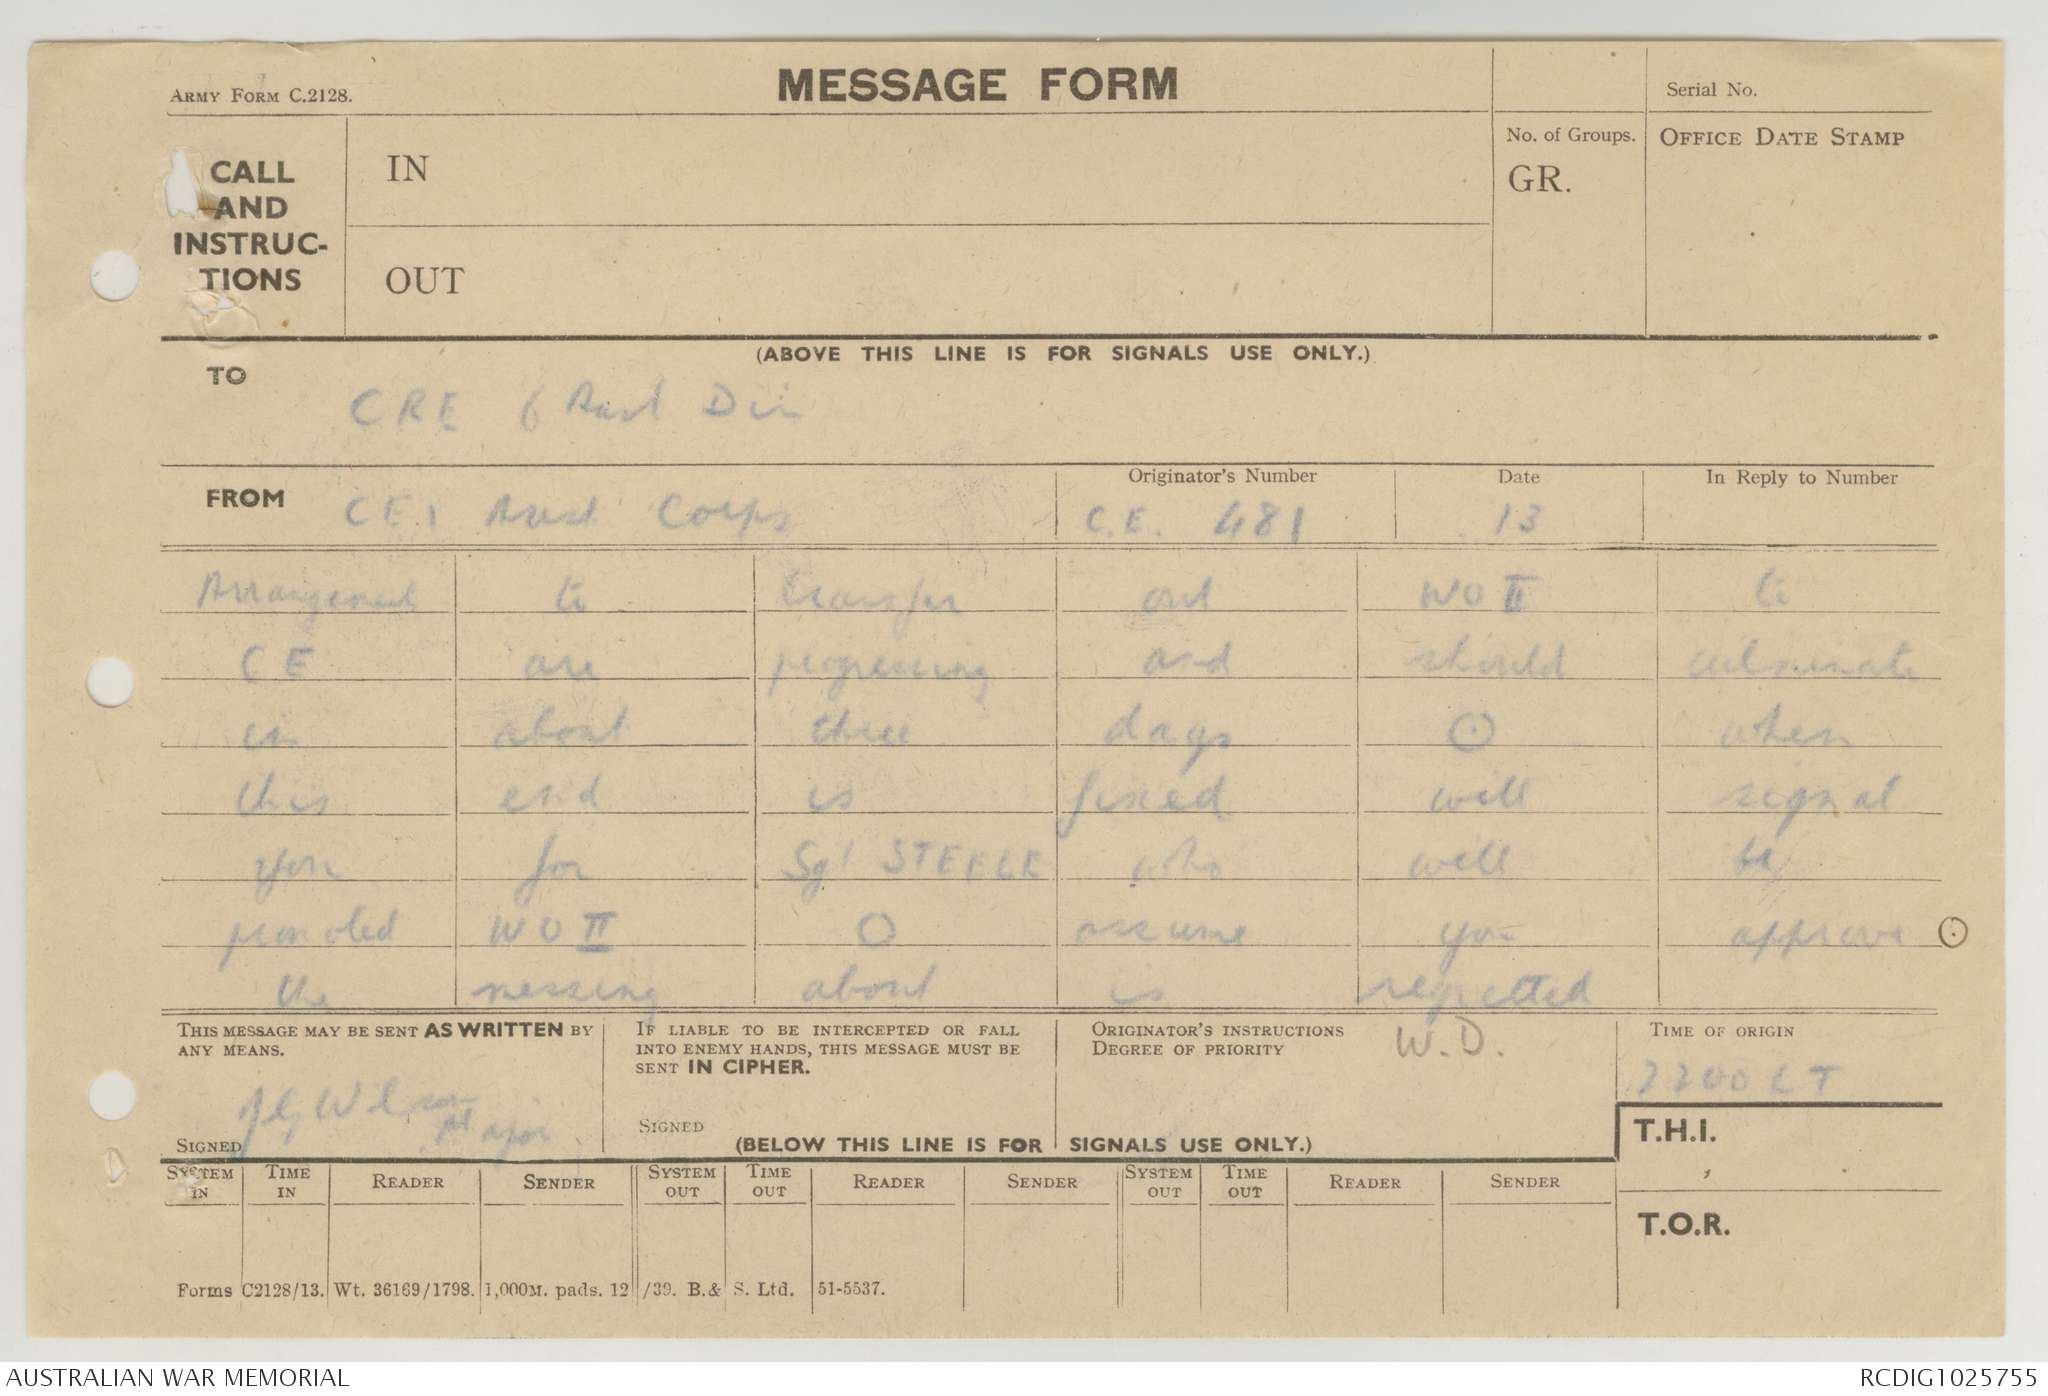 ARMY FORM C.2128.
MESSAGE FORM
Serial No.
CALL AND INSTRUC-TIONS
IN
OUT
No. of Groups.
GR.
OFFICE DATE STAMP
(ABOVE THIS LINE IS FOR SIGNALS USE ONLY.)
TO
CRE 6 Aust Div
FROM
CE 1 Aust Corps
Originator's Number
C.E. 481
Date
13
In Reply to Number
Arrangement to transfer out WO II to
CE are progressing and should culminate
in about three days ⊙ when
this end is fixed will signal
you for Sgt STEELE who will be
promoted WO II O assume you approve ⊙
the messing about is regretted
THIS MESSAGE MAY BE SENT AS WRITTEN BY ANY MEANS.
SIGNED
Wilson
Major
IF LIABLE TO BE INTERCEPTED OR FALL INTO ENEMY HANDS, THIS MESSAGE MUST BE SENT IN CIPHER.
SIGNED
ORIGINATOR'S INSTRUCTIONS
DEGREE OF PRIORITY
W.D.
TIME OF ORIGIN
2200 LT
(BELOW THIS LINE IS FOR SIGNALS USE ONLY.)
T.H.I.
T.O.R.
SYSTEM IN TIME IN READER SENDER SYSTEM OUT TIME OUT READER SENDER SYSTEM OUT TIME OUT READER SENDER
Forms C2128/13. Wt. 36169/1798. 1,000M. pads. 12/39. B.& S. Ltd. 51-5537.
AUSTRALIAN WAR MEMORIAL
RCDIG1025755